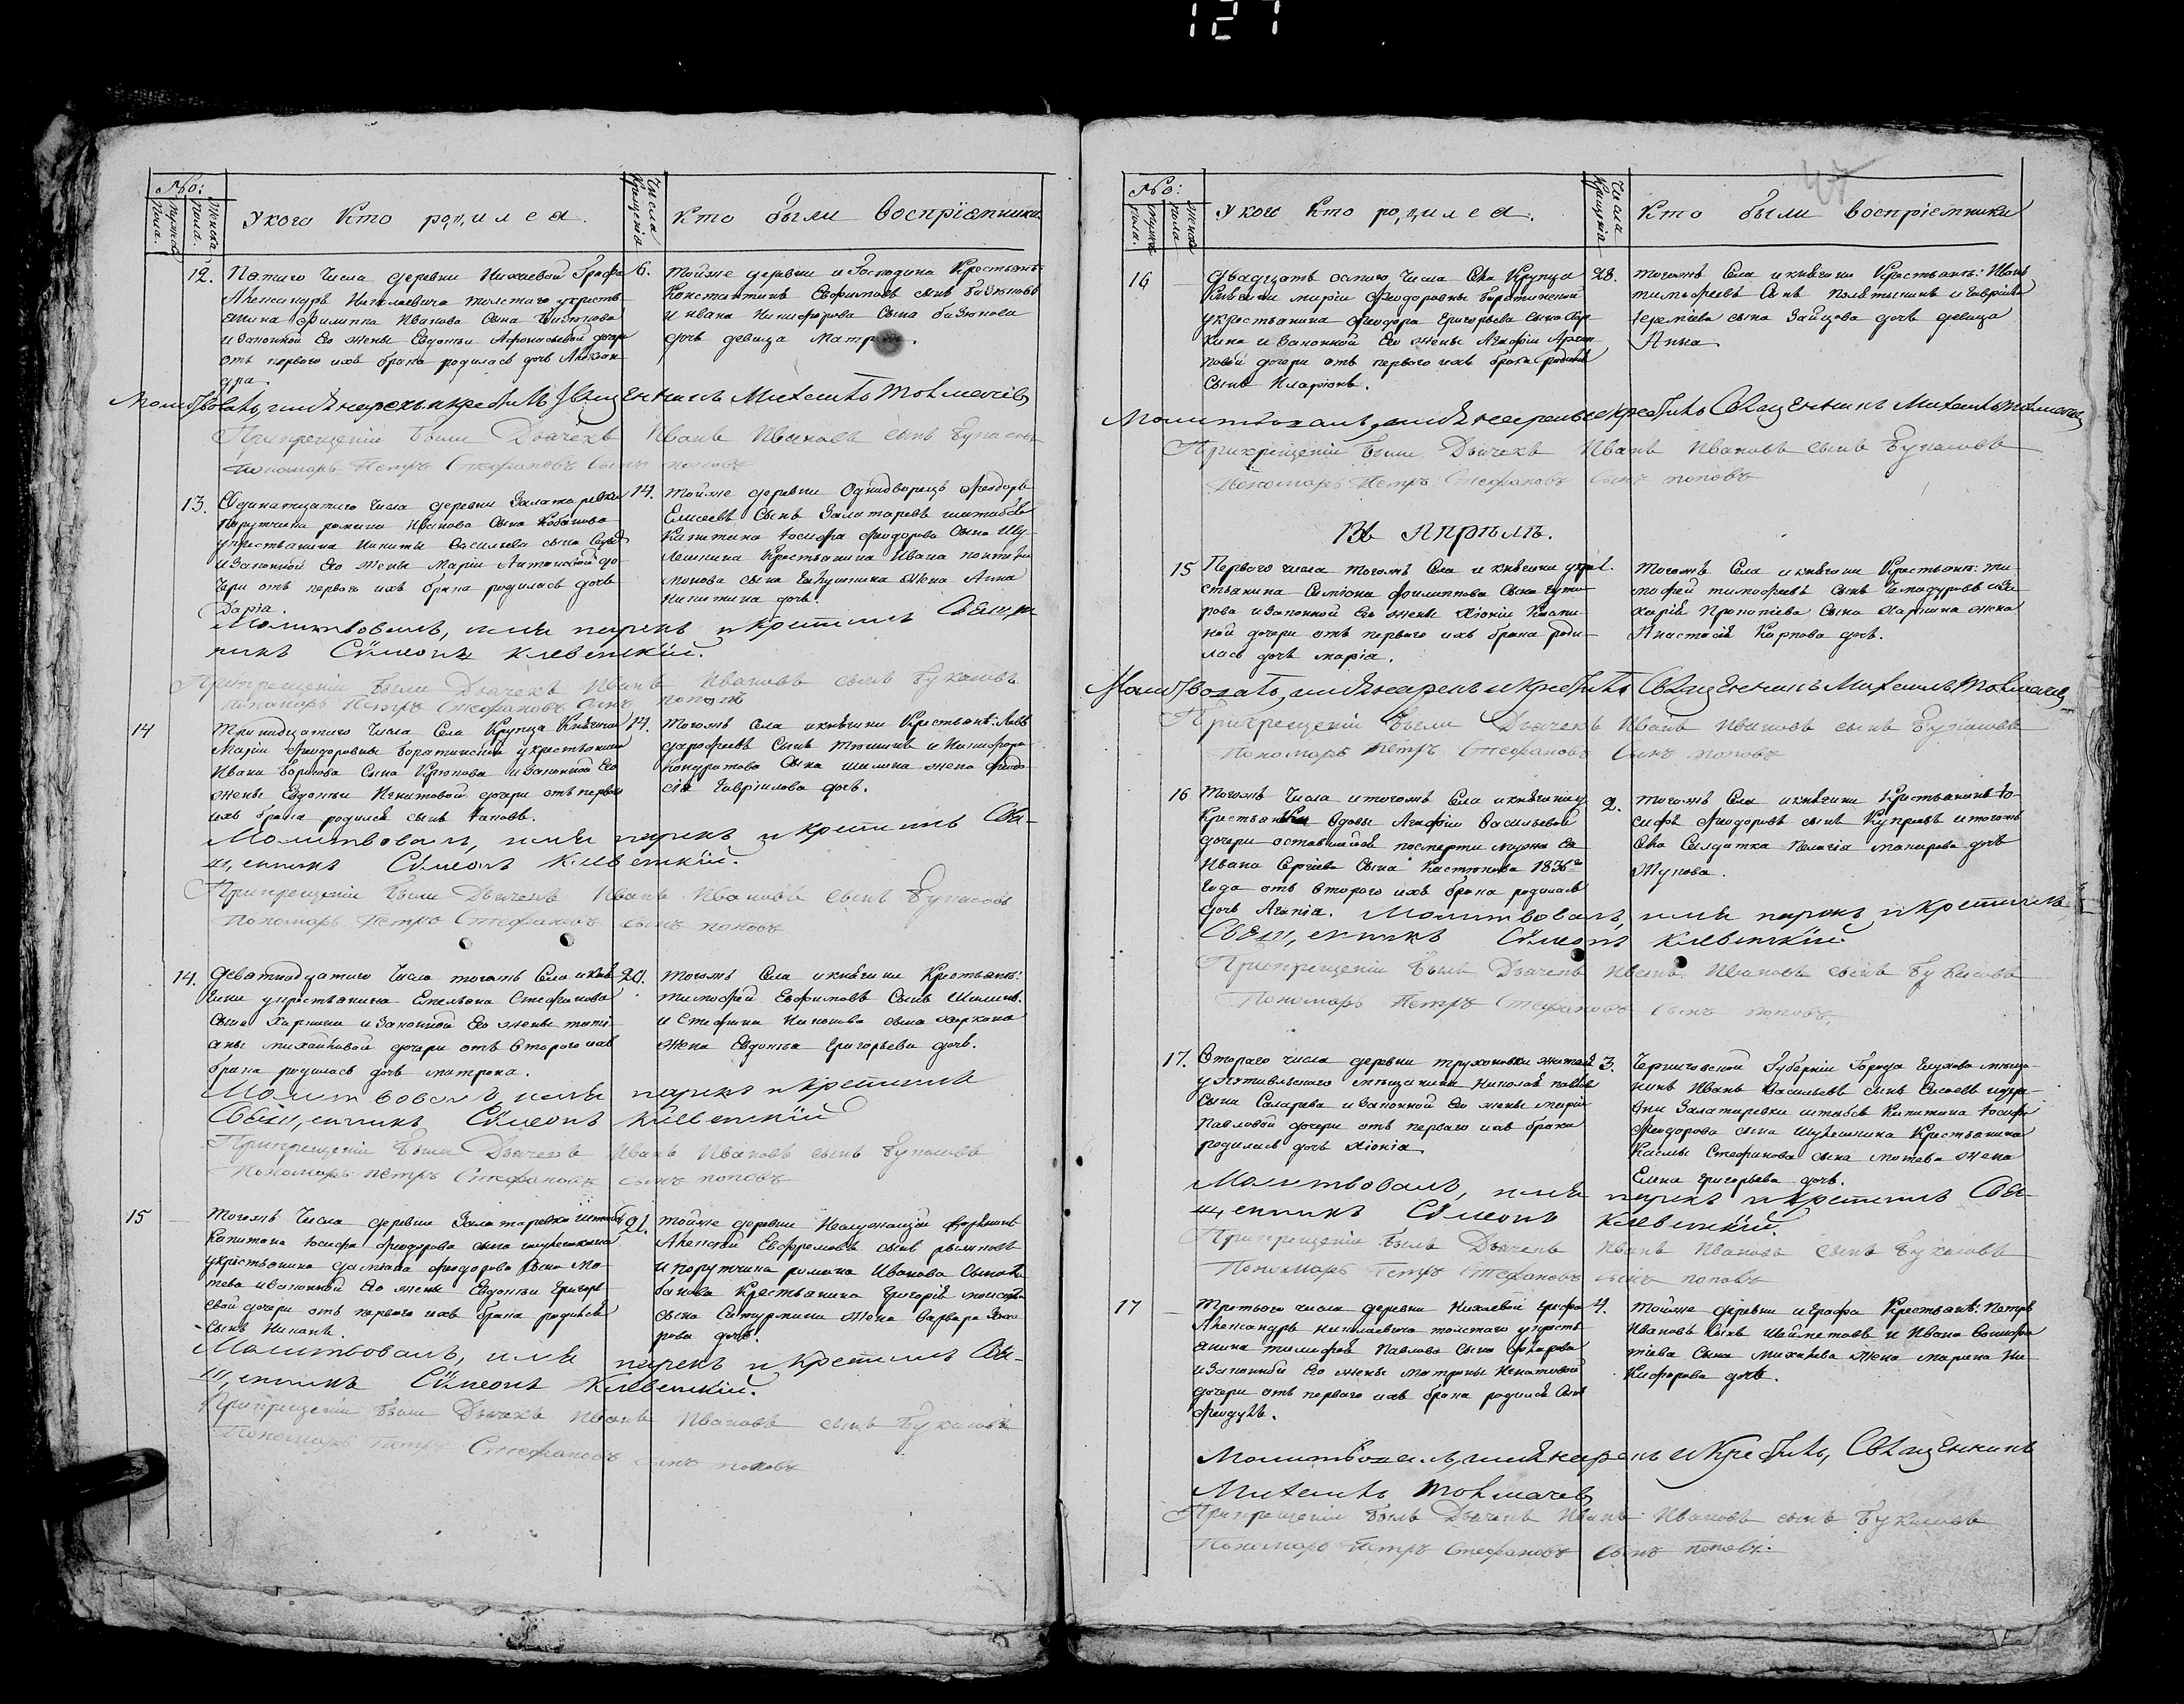 127
№:
мужеска пола.
женска пола.
У кого кто родился.
Числа крещенiя
Кто были воспрiемники
12. Пятаго числа деревни Нихаевой Графа
Александръ Николаевича толстаго у кресть
янина Филиппа Иванова сына
и законной его жены Евдокiи Афонасьевой дочери
отъ перваго ихъ брака родилась дочь Александ
ра
6. тойже деревни и господина Крестьянъ:
Константинъ Ефимовъ сынъ
и ивана Никифорова сына
дочь девица
Молитвовалъ, имя нарекъ и крестилъ Священникъ Михаилъ Толмачевъ
При крещенiи были Дьячекъ Иванъ Ивановъ сынъ Букасовъ
Пономарь Петръ Стефановъ сынъ поповъ
13. Одинатцатаго числа деревни Залатаревки
Порутчика романа Иванова сына Кобанова
у крестьянина Никиты Васильева сына
и законной его жены Марiи Антоновой до
чери отъ перваго ихъ брака родилась дочь
Дарiя.
14. тойже деревни Однодворецъ Феодоръ
Елисеевъ сынъ Залатаревъ штабсъ
Капитана Iосифа Феодорова сына Шу
лешкина Крестьянина Ивана
сына жена Анна
Никитина дочь.
Молитвовалъ, имя нарекъ и крестилъ Свящ,ен
никъ Сѵмеонъ Клевецкiй.
При крещенiи были Дьячекъ Иванъ Ивановъ сынъ Букасовъ
Пономарь Петръ Стефановъ сынъ поповъ
14 Тринадцатаго числа села Крупца Княгини
Марiи Феодоровны Барятинской у крестьянина
Ивана сына и законной его
жены Евдокiи Игнатовой дочери отъ перваго
ихъ брака родился сынъ Iаковъ.
14. тогожъ села и княгини Крестьянъ: Левъ
сынъ и Никифора
Кондратова сына шилина жена Феодо
сiя Гаврiилова дочь.
Молитвовалъ, имя нарекъ и крестилъ Свя-
щ,енникъ Сѵмеонъ Клевецкiй.
При крещенiи были Дьячекъ Иванъ Ивановъ сынъ Букасовъ
Пономарь Петръ Стефановъ сынъ поповъ
14. Девятнадцатаго числа тогожъ села и кня
гини у крестьянина Емельяна Стефанова
сына и законной его жены татi
аны михайловой дочери отъ втораго ихъ
брака родилась дочь матрона.
20. тогожъ села и княгини Крестьянъ:
тимофей Ефимовъ сынъ Шилинъ
и Стефана сына
жена Евдокiя Григорьева дочь.
Молитвовалъ, имя нарекъ и крестилъ
Священникъ Сѵмеонъ Клевецкiй
При крещенiи были Дьячекъ Иванъ Ивановъ сынъ Букасовъ
Пономарь Петръ Стефановъ сынъ поповъ
15 Тогожъ числа деревни Залатаревки штабсъ
Капитана Iосифа Феодорова сына шулешкина
у крестьянина Феодорова сына Мо
тева и законной его жены Евдокiи Григорь
евой дочери отъ перваго ихъ брака родился
сынъ
21. тойже деревни
Алексей Ефремовъ сынъ
и порутчика романа Иванова сына Ко
банова Крестьянина Григорiя
сына жена Варвара
дочь.
Молитвовалъ, имя нарекъ и крестилъ Свя-
щ,енникъ Сѵмеонъ Клевецкiй.
При крещенiи были Дьячекъ Иванъ Ивановъ сынъ Букасовъ
Пономарь Петръ Стефановъ сынъ поповъ
№:
мужеска пола.
женска пола
У кого кто родился.
Числа крещенiя
Кто были воспрiемники
16 Двадцать осмаго числа села Крупца
Княгини марiи Феодоровны Барятинской
у крестьянина Феодора Григорьева сына
и законной его жены Агафiи
дочери отъ перваго ихъ брака родился
сынъ Иларiонъ.
28. тогожъ села и княгини Крестьянъ: Иванъ
тимофеевъ сынъ и Гаврiила
Iеремiева сына Зайцова дочь девица
Анна
Молитвовалъ, имя нарекъ и крестилъ Священникъ Михаилъ Толмачевъ
При крещенiи были Дьячекъ Иванъ Ивановъ сынъ Букасовъ
Пономарь Петръ Стефановъ сынъ поповъ
Въ Апрѣлѣ.
15 Перваго числа тогожъ села и княгини у кре
стьянина Симiона Филиппова сына
и законной его жены Хiонiи
дочери отъ перваго ихъ брака роди
лась дочь марiя.
1. тогожъ села и княгини Крестьянъ: ти
мофей тимофеевъ сынъ и За
харiя Прокопiева сына жена
Анастасiя Карпова дочь.
Молитвовалъ, имя нарекъ и крестилъ Священникъ Михаилъ Толмачевъ
При крещенiи были Дьячекъ Иванъ Ивановъ сынъ Букасовъ
Пономарь Петръ Стефановъ сынъ поповъ
16 Тогожъ числа и тогожъ села и княгини у
крестьянки вдовы Агафiи Васильевой
дочери оставшейся посмерти мужа ея
Ивана Сергiева сына 1836го
года отъ втораго ихъ брака родилась
дочь Агапiя.
2. тогожъ села и княгини Крестьянинъ Iо
сифъ Феодоровъ сынъ и тогожъ
села Солдатка Пелагiя дочь
Жукова.
Молитвовалъ, имя нарекъ и крестилъ
Священникъ Сѵмеонъ Клевецкiй.
При крещенiи были Дьячекъ Иванъ Ивановъ сынъ Букасовъ
Пономарь Петръ Стефановъ сынъ поповъ.
17. Втораго числа деревни
у путивльскаго мещанина Николая
сына и законной его жены марiи
Павловой дочери отъ перваго ихъ брака
родилась дочь Хiонiя
3. Черниговской Губернiи Города Глухова меща
нинъ Иванъ Васильевъ сынъ и дере
вни Залатаревки штабсъ Капитана Iосифа
Феодорова сына Шулешкина Крестьянина
Космы Стефанова сына мотева жена
Елена Григорьева дочь.
Молитвовалъ, имя нарекъ и крестилъ Свя-
щ,енникъ Сѵмеонъ Клевецкiй.
При крещенiи были Дьячекъ Иванъ Ивановъ сынъ Букасовъ
Пономарь Петръ Стефановъ сынъ поповъ
17 Третьяго числа деревни Нихаевой графа
Александръ николаевича толстаго у кресть
янина тимофея Павлова сына
и законной его жены матроны Игнатовой
дочери отъ перваго ихъ брака родился сынъ
Феодулъ.
4. тойже деревни и графа Крестьянъ: Петръ
Ивановъ сынъ и Ивана
сына жена марина Ни
кифорова дочь.
Молитвовалъ, имя нарекъ и крестилъ, Священникъ
Михаилъ Толмачевъ
При крещенiи были Дьячекъ Иванъ Ивановъ сынъ Букасовъ
Пономарь Петръ Стефановъ сынъ поповъ.